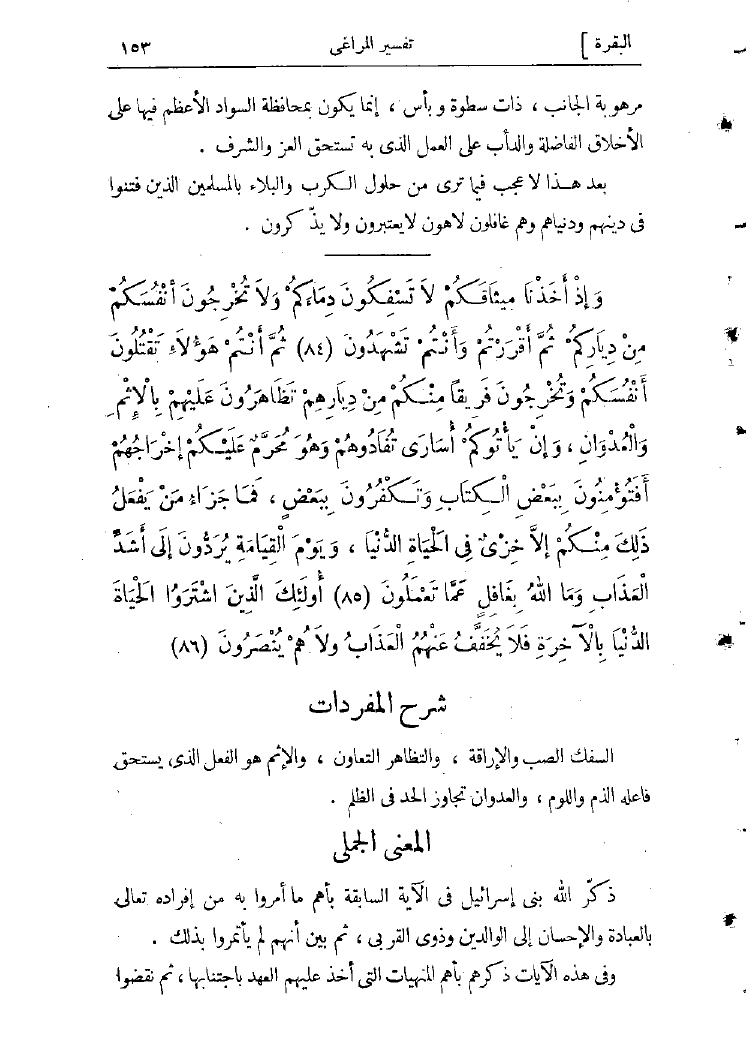 البقرة ] تفسير المراغى ١٥٣
مرهوبة الجانب ، ذات سطوة وبأس ، إنما يكون بمحافظة السواد الأعظم فيها على
الأخلاق الفاضلة والدأب على العمل الذى به تستحق العز والشرف .
بعد هذا لا عجب فيما ترى من حلول الكرب والبلاء بالمسلمين الذين فتنوا
فى دينهم ودنياهم وهم غافلون لاهون لا يعتبرون ولا يذّكرون .
وَإِذْ أَخَذْنَا مِيثَاقَكُمْ لاَ تَسْفِكُونَ دِمَاءَكُمْ وَلاَ تُخْرِجُونَ أَنْفُسَكُمْ
مِنْ دِيَارِكُمْ ثُمَّ أَقْرَرْتُمْ وَأَنْتُمْ تَشْهَدُونَ (٨٤) ثُمَّ أَنْتُمْ هَؤُلاَءِ تَقْتُلُونَ
أَنْفُسَكُمْ وَتُخْرِجُونَ فَرِيقاً مِنْكُمْ مِنْ دِيَارِهِمْ تَظَاهَرُونَ عَلَيْهِمْ بِالْإِثْمِ
وَالْعُدْوَانِ ، وَإِنْ يَأْتُوكُمْ أُسَارَى تُفَادُوهُمْ وَهُوَ مُحَرَّمٌ عَلَيْكُمْ إِخْرَاجُهُمْ
أَفَتُؤْمِنُونَ بِبَعْضِ الْكِتَابِ وَتَكْفُرُونَ بِبَعْضٍ ، فَمَا جَزَاءُ مَنْ يَفْعَلُ
ذَلِكَ مِنْكُمْ إِلاَّ خِزْىٌ فِى الْحَيَاةِ الدُّنْيَا ، وَيَوْمَ الْقِيَامَةِ يُرَدُّونَ إِلَى أَشَدِّ
الْعَذَابِ وَمَا اللهُ بِغَافِلٍ عَمَّا تَعْمَلُونَ (٨٥) أُولَئِكَ الَّذِينَ اشْتَرَوُا الْحَيَاةَ
الدُّنْيَا بِالْآخِرَةِ فَلاَ يُخَفَّفُ عَنْهُمُ الْعَذَابُ وَلاَ هُمْ يُنْصَرُونَ (٨٦)
شرح المفردات
السفك الصب والإراقة ، والتظاهر التعاون ، والإثم هو الفعل الذى يستحق
فاعله الذم واللوم ، والعدوان تجاوز الحد فى الظلم .
المعنى الجملى
ذكّر الله بنى إسرائيل فى الآية السابقة بأهم ما أمروا به من إفراده تعالى
بالعبادة والإحسان إلى الوالدين وذوى القربى ، ثم بين أنهم لم يأتمروا بذلك .
وفى هذه الآيات ذكرهم بأهم المنهيات التى أخذ عليهم العهد باجتنابها ، ثم نقضوا